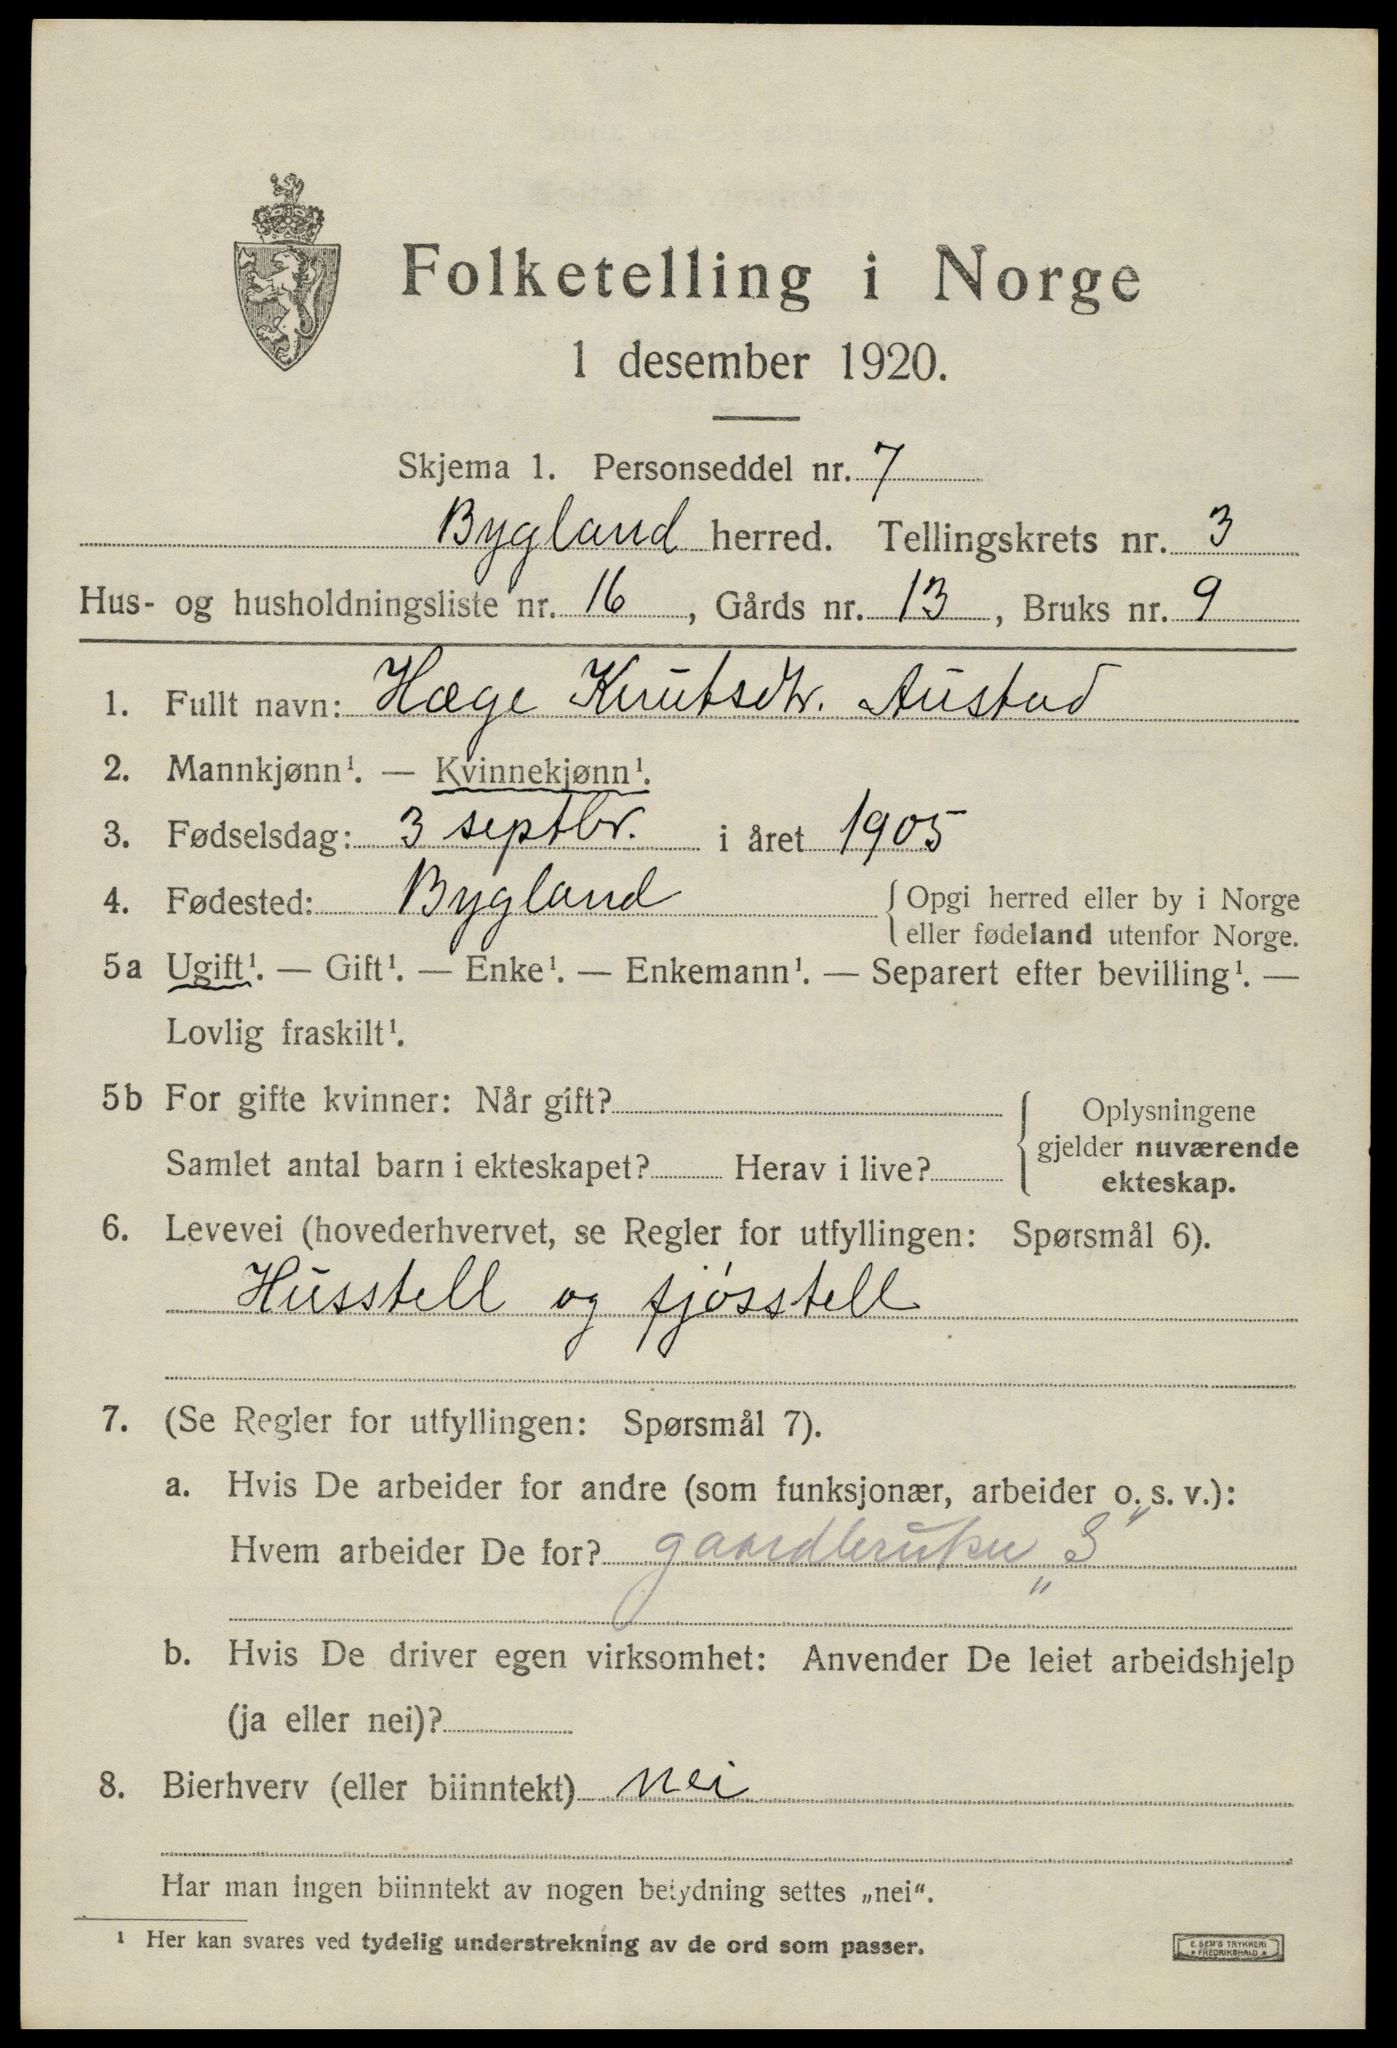 Folketelling i Norge
1 desember 1920.
Skjema 1. Personseddel nr. 7
Bygland herred. Tellingskrets nr. 3
Hus- og husholdningsliste nr. 16, Gårds nr. 13, Bruks nr. 9
1. Fullt navn: Hæge Knutsdtr. Austad
2. Mannkjønn¹. — Kvinnekjønn¹.
3. Fødselsdag: 3 septbr. i året 1905
4. Fødested: Bygland { Opgi herred eller by i Norge
eller fødeland utenfor Norge.
5a Ugift¹. — Gift¹. — Enke¹. — Enkemann¹. — Separert efter bevilling¹. —
Lovlig fraskilt¹.
5b For gifte kvinner: Når gift? { Oplysningene
gjelder nuværende
Samlet antal barn i ekteskapet? Herav i live?
ekteskap.
6. Levevei (hovederhvervet, se Regler for utfyllingen: Spørsmål 6).
Husstell og fjøsstell
7. (Se Regler for utfyllingen: Spørsmål 7).
a. Hvis De arbeider for andre (som funksjonær, arbeider o. s. v.):
Hvem arbeider De for? gaardbruker „S"
b. Hvis De driver egen virksomhet: Anvender De leiet arbeidshjelp
(ja eller nei)?
8. Bierhverv (eller biinntekt) nei
Har man ingen biinntekt av nogen betydning settes „nei“.
¹ Her kan svares ved tydelig understrekning av de ord som passer.
E. SEM'S TRYKKERI
* FREDRIKSHALD *